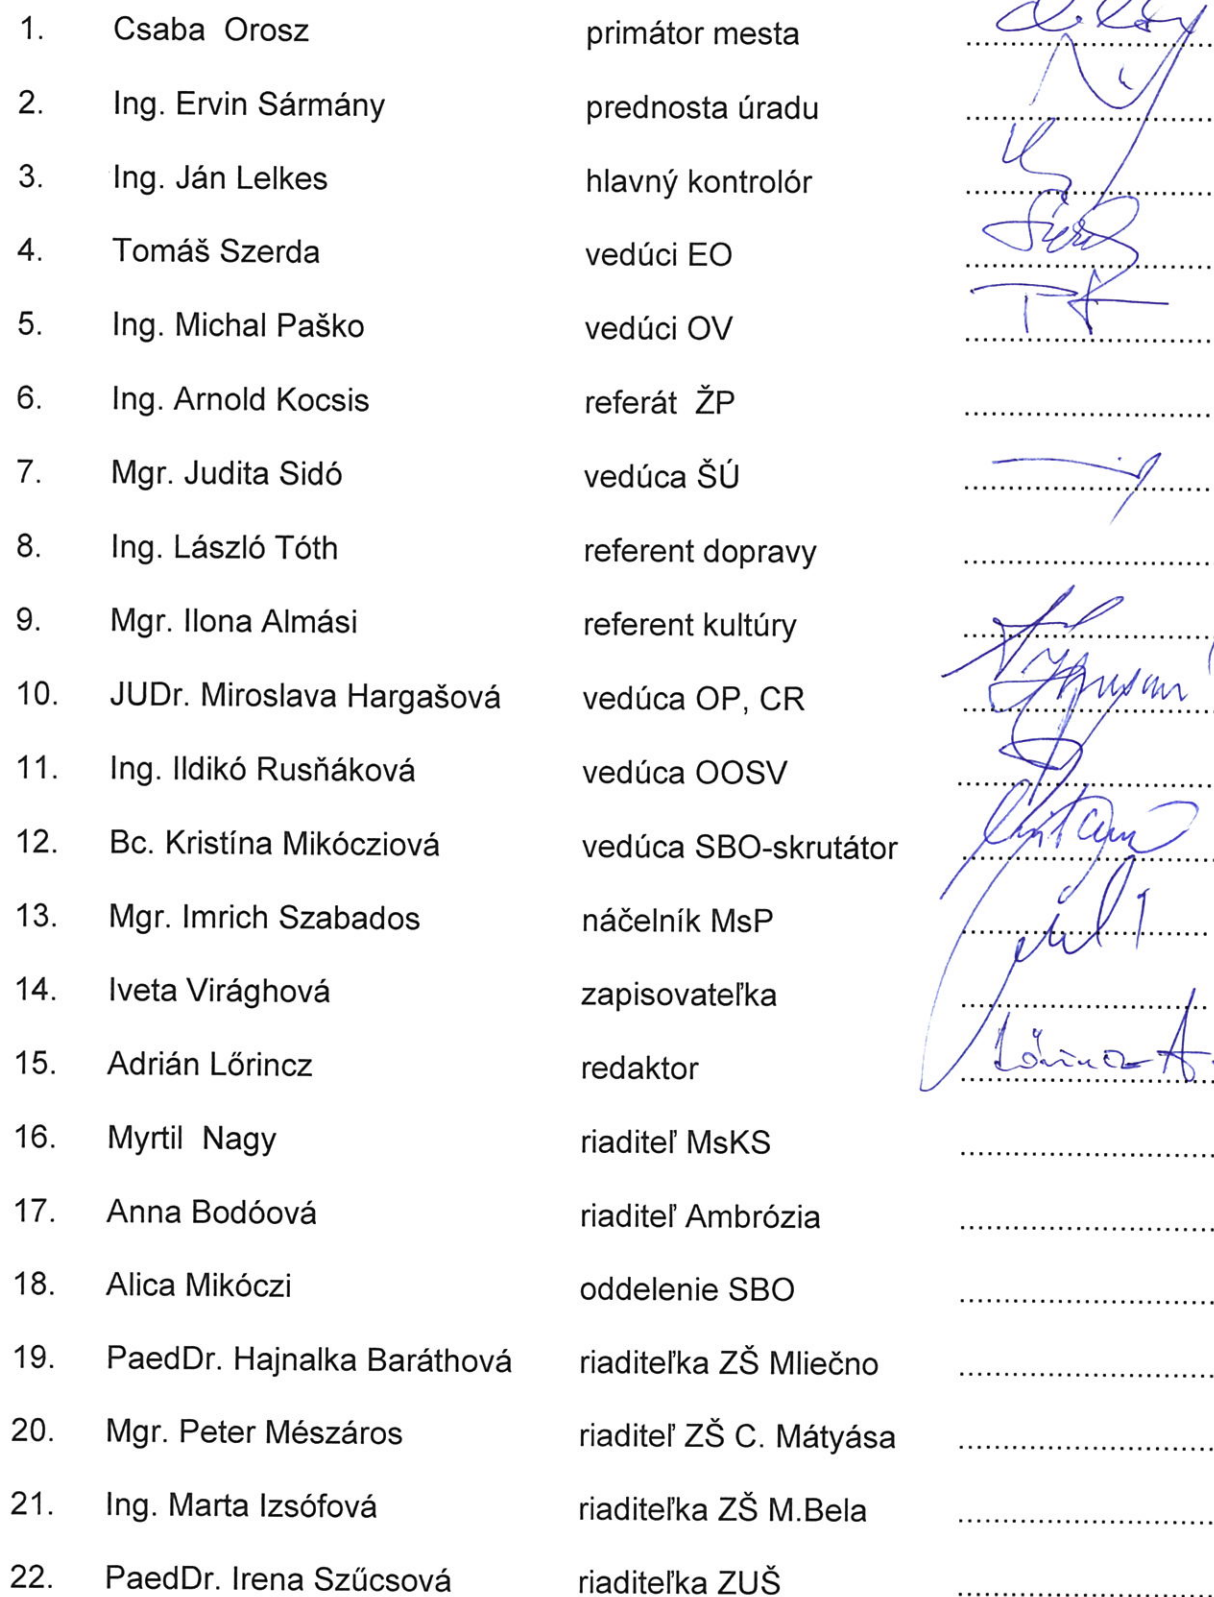 1. Csaba Orosz primátor mesta
2. Ing. Ervin Sármány prednosta úradu
3. Ing. Ján Lelkes hlavný kontrolór
4. Tomáš Szerda vedúci EO
5. Ing. Michal Paško vedúci OV
6. Ing. Arnold Kocsis referát ŽP
7. Mgr. Judita Sidó vedúca ŠÚ
8. Ing. László Tóth referent dopravy
9. Mgr. Ilona Almási referent kultúry
10. JUDr. Miroslava Hargašová vedúca OP, CR
11. Ing. Ildikó Rusňáková vedúca OOSV
12. Bc. Kristína Mikócziová vedúca SBO-skrutátor
13. Mgr. Imrich Szabados náčelník MsP
14. Iveta Virághová zapisovateľka
15. Adrián Lőrincz redaktor Lőrincz A.
16. Myrtil Nagy riaditeľ MsKS
17. Anna Bodóová riaditeľ Ambrózia
18. Alica Mikóczi oddelenie SBO
19. PaedDr. Hajnalka Baráthová riaditeľka ZŠ Mliečno
20. Mgr. Peter Mészáros riaditeľ ZŠ C. Mátyása
21. Ing. Marta Izsófová riaditeľka ZŠ M.Bela
22. PaedDr. Irena Szűcsová riaditeľka ZUŠ